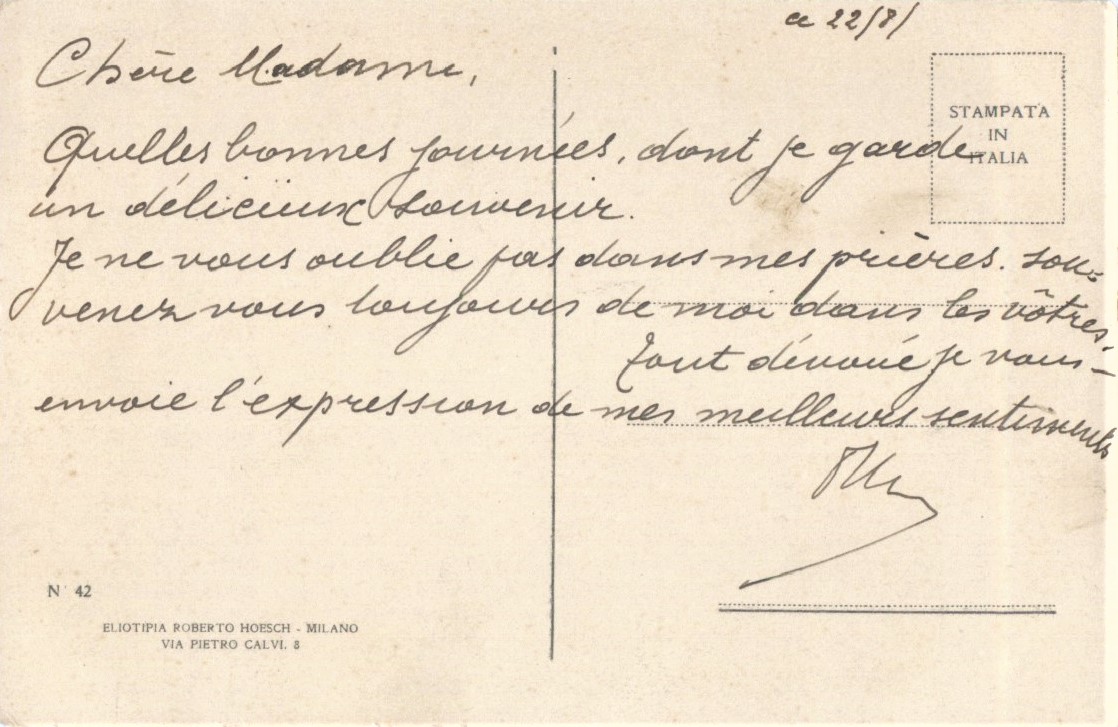 ce 22/8/
Chère Madame,
STAMPATA
IN
ITALIA
Quelles bonnes journées, dont je garde
un délicieux souvenir.
Je ne vous oublie pas dans mes prières. Sou-
venez vous toujours de moi dans les vôtres.
Tout dévoué je vous
envoie l'expression de mes meilleurs sentiments
N 42
ELIOTIPIA ROBERTO HOESCH - MILANO
VIA PIETRO CALVI. 8